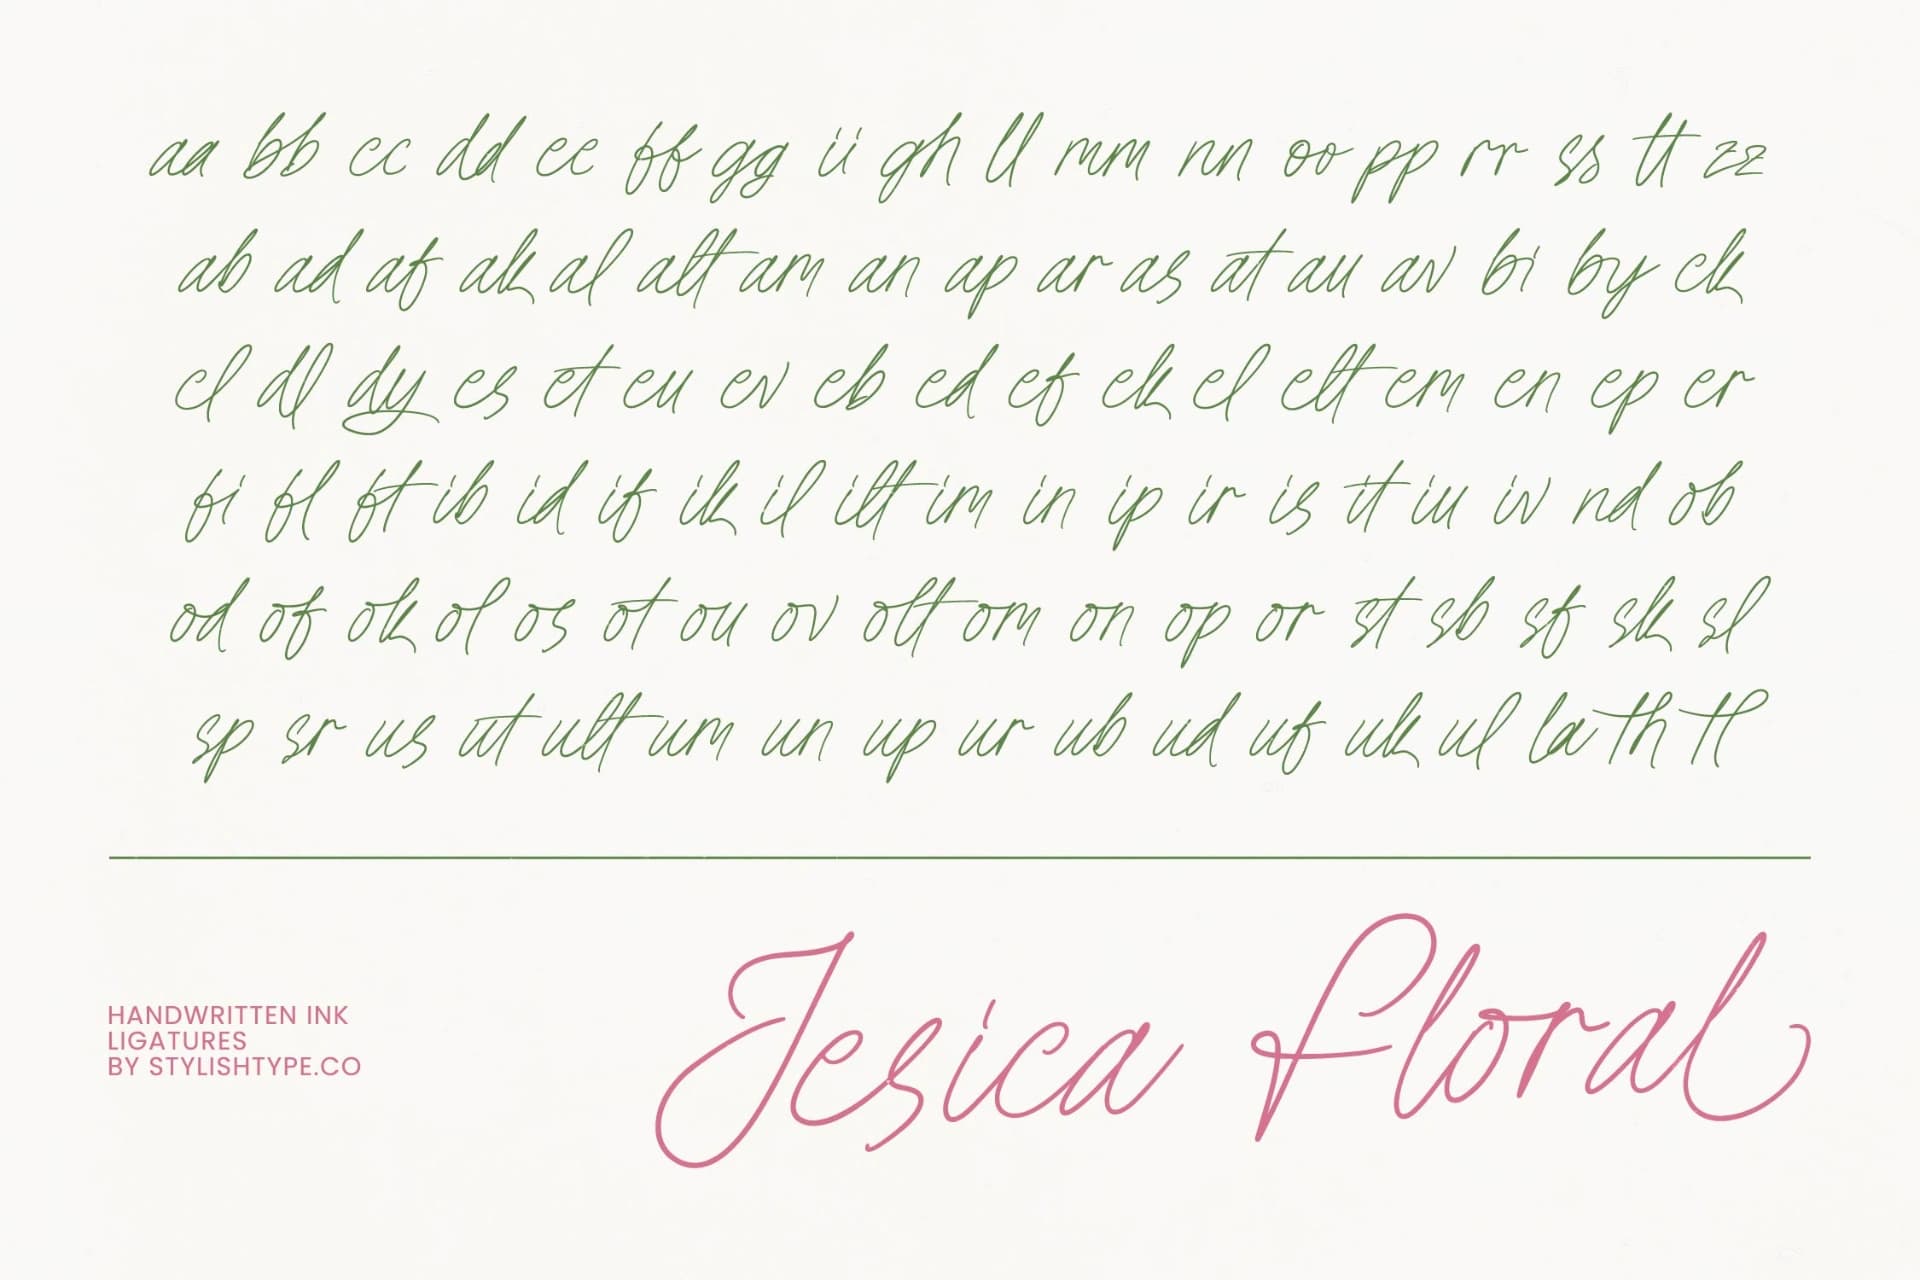 aa bb cc dd ee ff gg ii gh ll mm nn oo pp rr ss tt zz
ab ad af ak al alt am an ap ar as at au av bi by ck
cl dl dy es et eu ev eb ed ef ek el elt em en ep er
fi fl ft ib id if ik il ilt im in ip ir is it iu iv nd ob
od of ok ol os ot ou ov olt om on op or st sb sf sk sl
sp sr us ut ult um un up ur ub ud uf uk ul la th tl
HANDWRITTEN INK
LIGATURES
BY STYLISHTYPE.CO
Jesica Floral